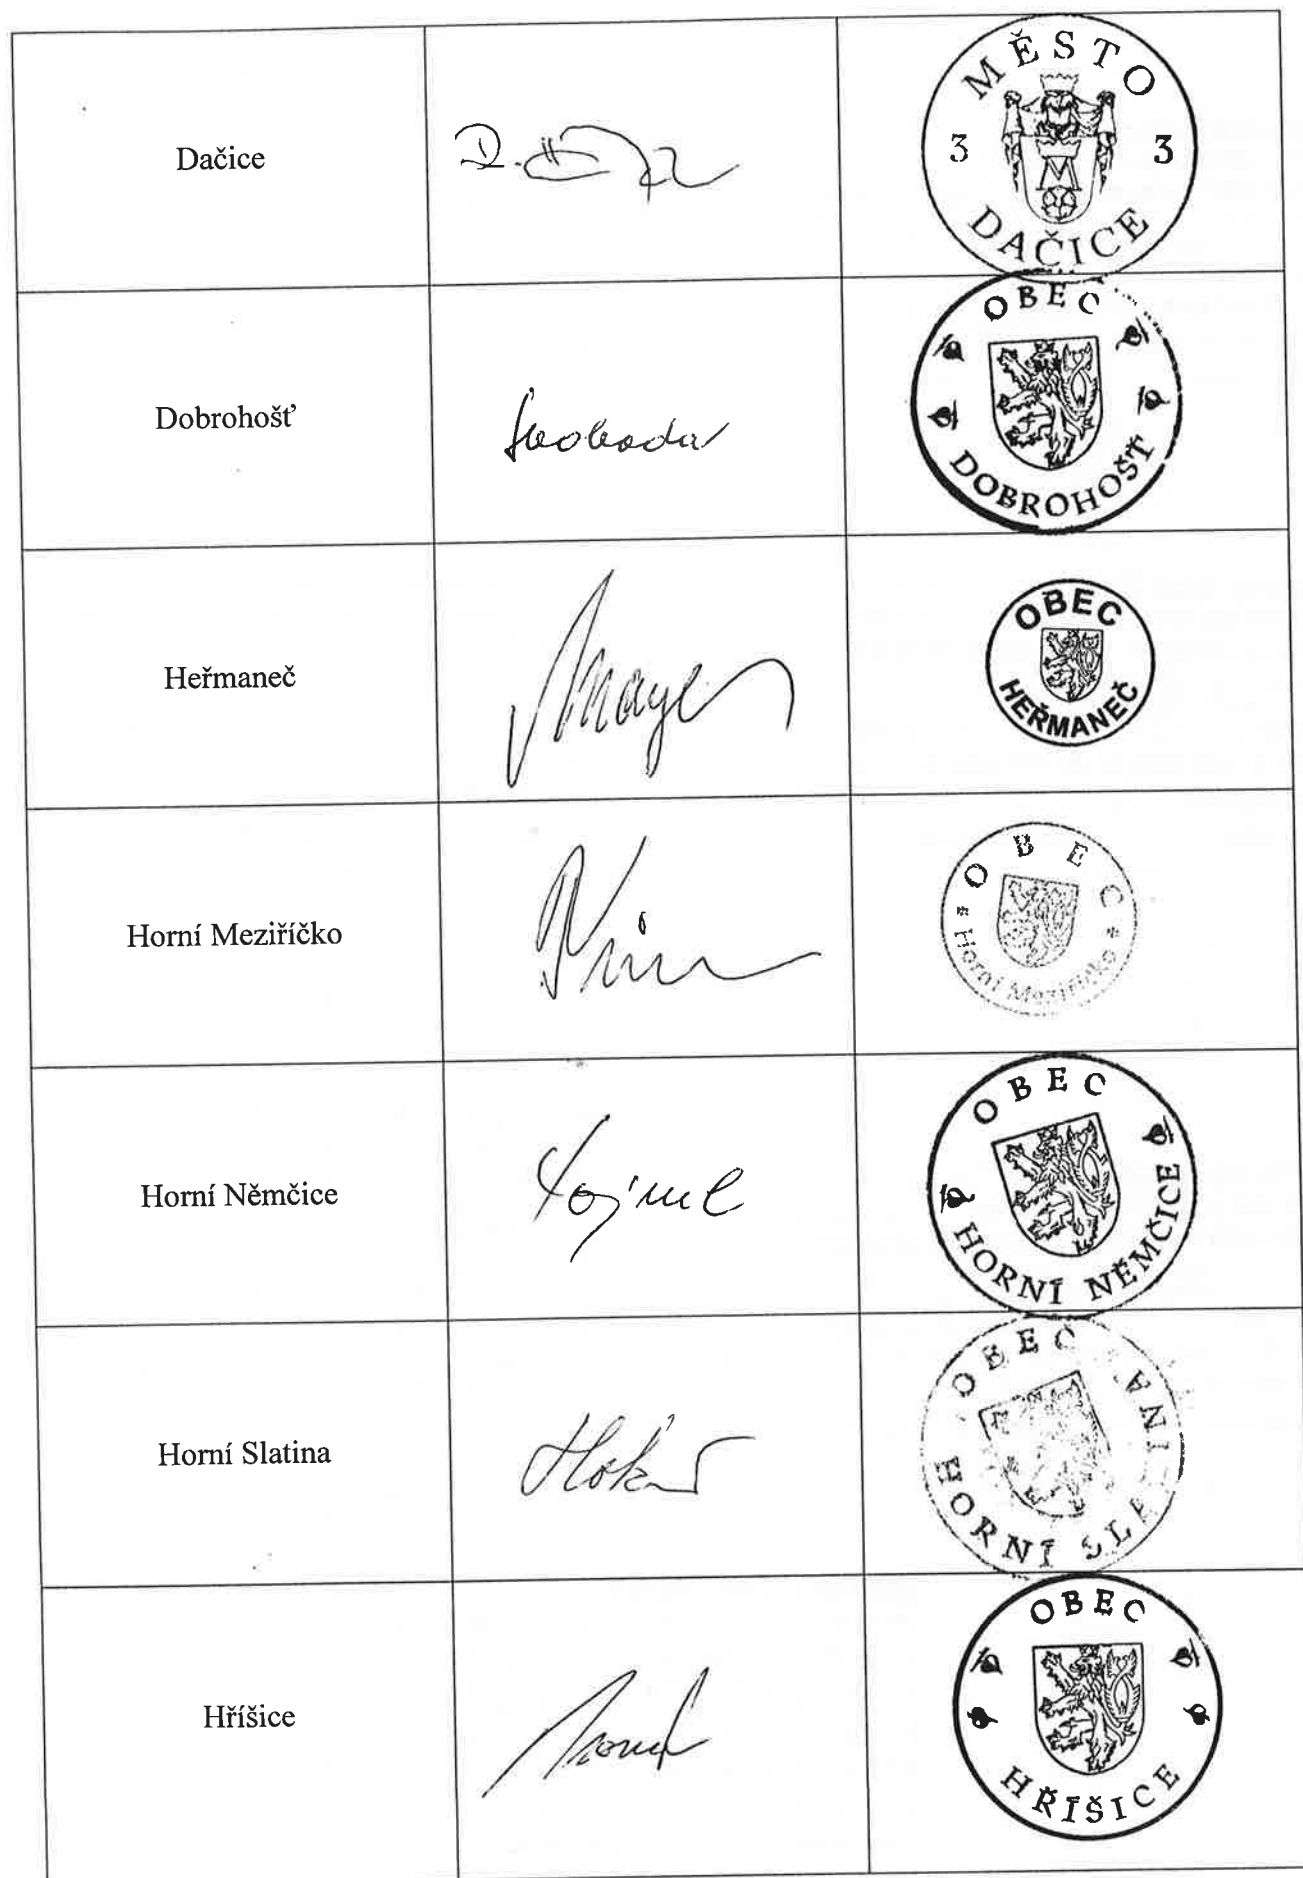 Dačice
MĚSTO
3 3
DAČICE
Dobrohošť
Svoboda
OBEC
DOBROHOŠŤ
Heřmaneč
Mayer
OBEC
HEŘMANEČ
Horní Meziříčko
OBEC
* Horní Meziříčko *
Horní Němčice
OBEC
HORNÍ NĚMČICE
Horní Slatina
OBEC
HORNÍ SLATINA
Hříšice
OBEC
HŘÍŠICE